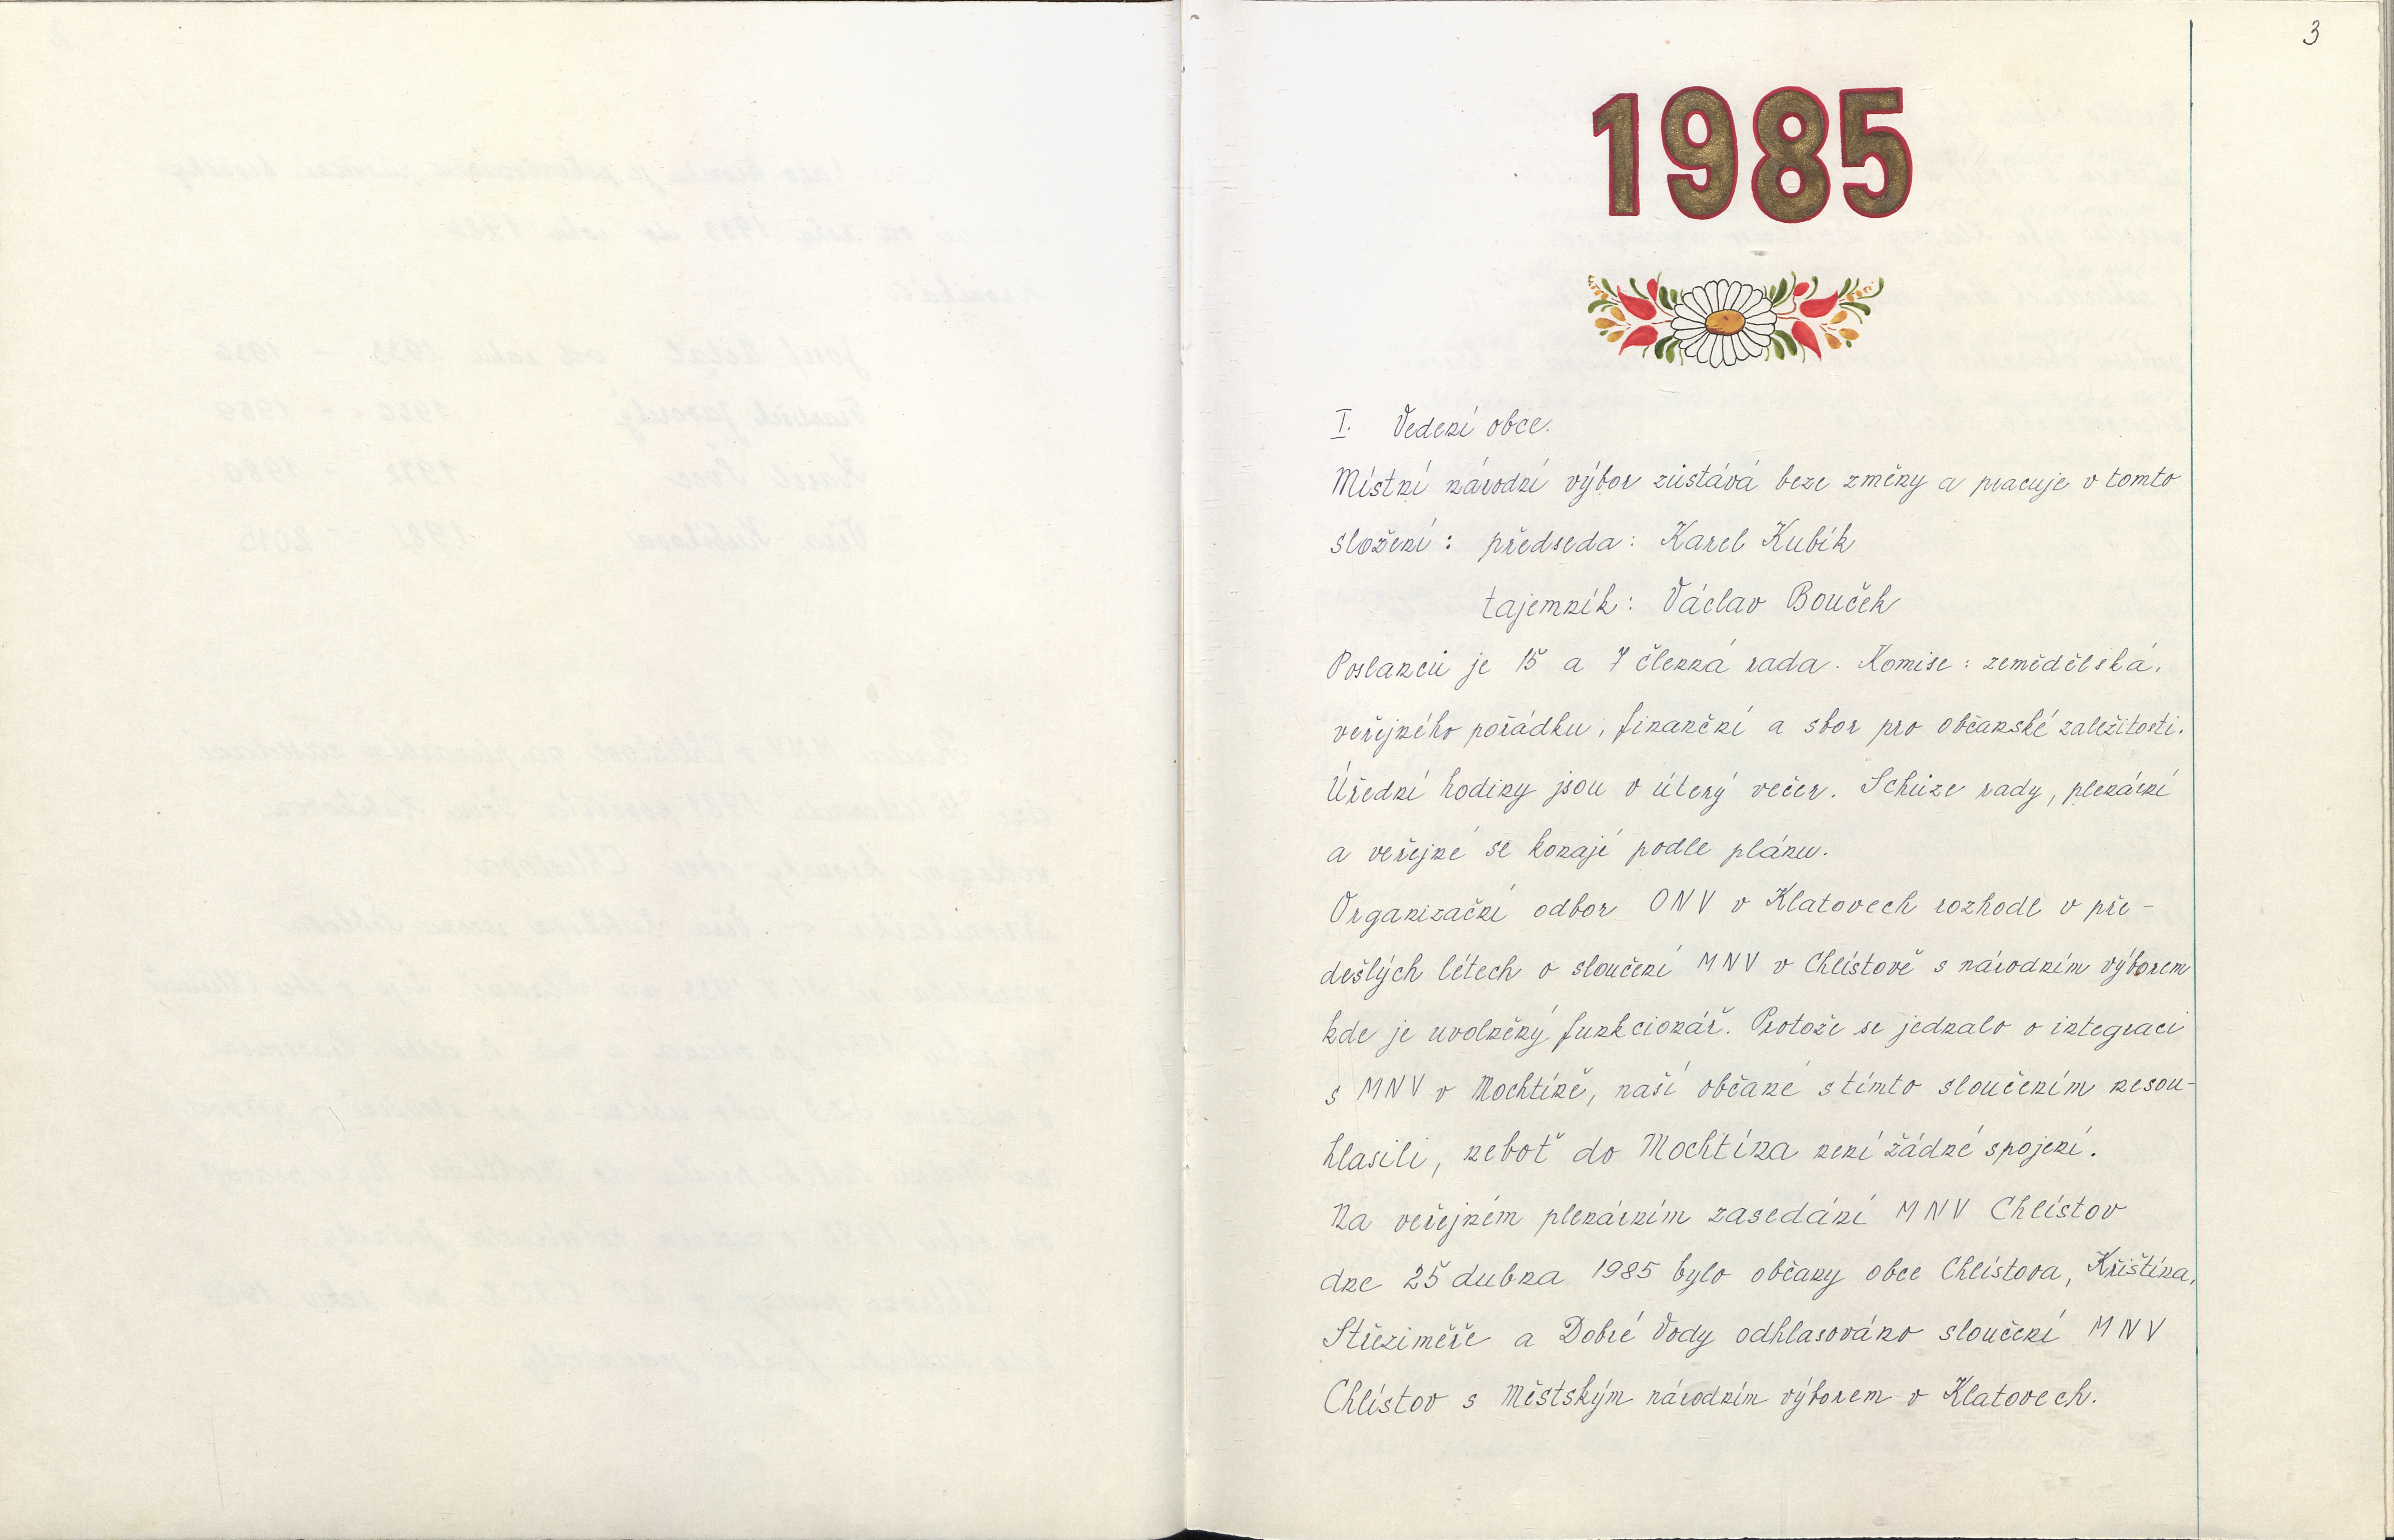 3
1985
I. Vedení obce.
Místní národní výbor zůstává beze změny a pracuje v tomto
složení: předseda: Karel Kubík
tajemník: Václav Bouček
Poslanců je 15 a 7 členná rada. Komise: zemědělská,
veřejného pořádku, finanční a sbor pro občanské zaležitosti.
Úřední hodiny jsou v úterý večer. Schůze rady, plenární
a veřejné se konají podle plánu.
Organizační odbor ONV v Klatovech rozhodl v pře-
dešlých létech o sloučení MNV v Chlístově s národním výborem
kde je uvolněný funkcionář. Protože se jednalo o integraci
s MNV v Mochtíně, naší občané s tímto sloučením nesou-
hlasili, neboť do Mochtína není žádné spojení.
Na veřejném plenárním zasedání MNV Chlístov
dne 25 dubna 1985 bylo občany obce Chlístova, Křištína,
Střeziměře a Dobré Vody odhlasováno sloučení MNV
Chlístov s Městským národním výborem v Klatovech.